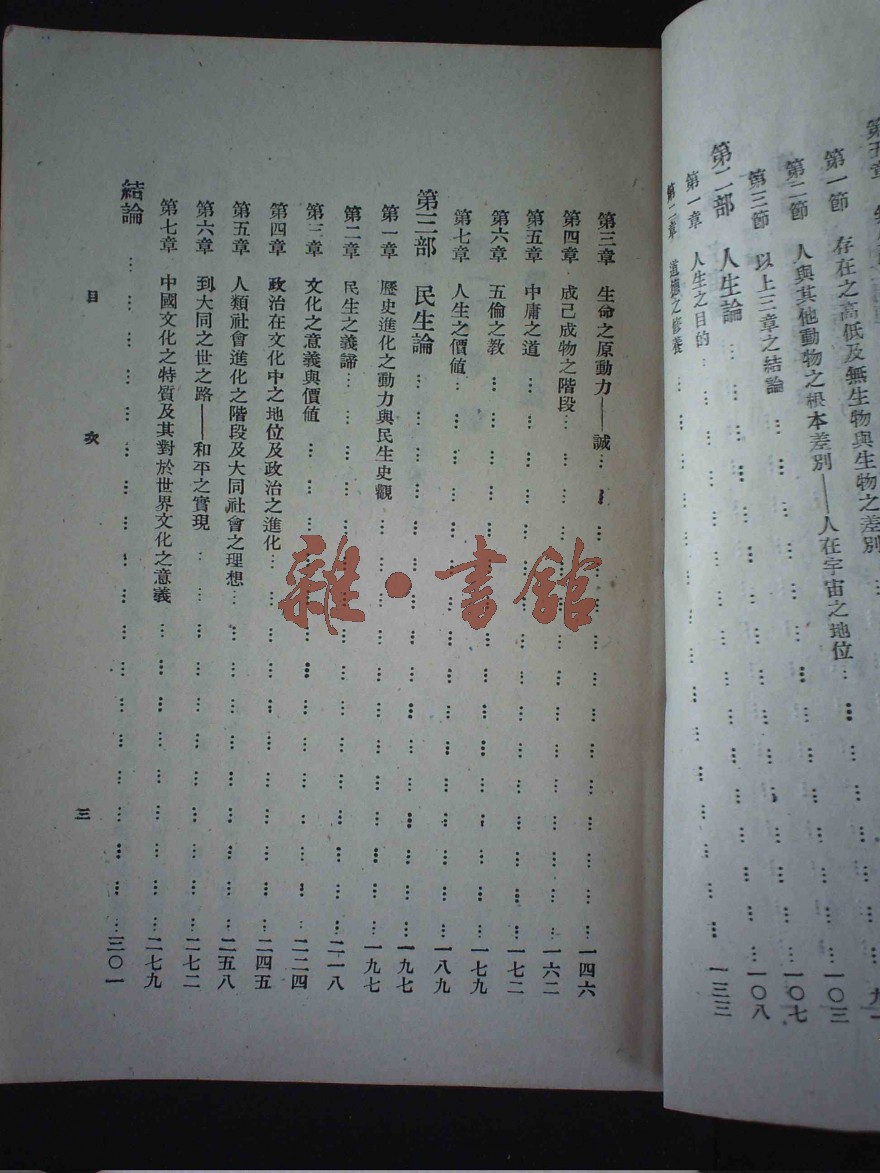 第一節 存在之高低及無生物與生物之差別……九一
第二節 人與其他動物之根本差別——人在宇宙之地位……一〇三
第三節 以上三章之結論……一〇七
第二部 人生論……一〇八
第一章 人生之目的……一三三
第二章 道德之修養
第三章 生命之原動力——誠……一四六
第四章 成己成物之階段……一六二
第五章 中庸之道……一七二
第六章 五倫之教……一七九
第七章 人生之價值……一八九
第三部 民生論……一九七
第一章 歷史進化之動力與民生史觀……一九七
第二章 民生之義諦……二一八
第三章 文化之意義與價值……二二四
第四章 政治在文化中之地位及政治之進化……二四五
第五章 人類社會進化之階段及大同社會之理想……二五八
第六章 到大同之世之路——和平之實現……二七二
第七章 中國文化之特質及其對於世界文化之意義……二七九
結論……三〇一
目次 三
雜·書館